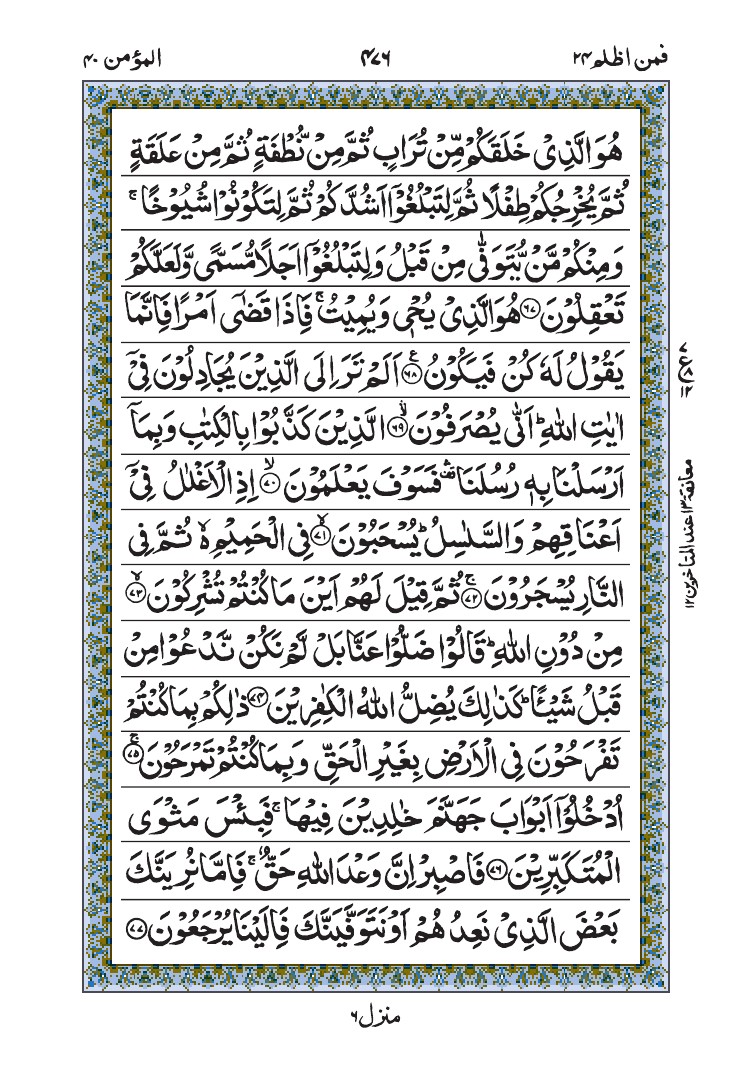 فمن اظلم ۲۴ ۴۷۶ المؤمن ۴۰
هُوَ الَّذِیْ خَلَقَکُمْ مِّنْ تُرَابٍ ثُمَّ مِنْ نُّطْفَةٍ ثُمَّ مِنْ عَلَقَةٍ
ثُمَّ یُخْرِجُکُمْ طِفْلًا ثُمَّ لِتَبْلُغُوْۤا اَشُدَّکُمْ ثُمَّ لِتَکُوْنُوْا شُیُوْخًا ۚ
وَمِنْکُمْ مَّنْ یُّتَوَفّٰی مِنْ قَبْلُ وَلِتَبْلُغُوْۤا اَجَلًا مُّسَمًّی وَّلَعَلَّکُمْ
تَعْقِلُوْنَ ﴿۶۷﴾ هُوَ الَّذِیْ یُحْیٖ وَیُمِیْتُ ۚ فَاِذَا قَضٰۤی اَمْرًا فَاِنَّمَا
یَقُوْلُ لَهٗ کُنْ فَیَکُوْنُ ﴿۶۸﴾ ع اَلَمْ تَرَ اِلَی الَّذِیْنَ یُجَادِلُوْنَ فِیْۤ
اٰیٰتِ اللهِ ؕ اَنّٰی یُصْرَفُوْنَ ﴿۶۹﴾ الَّذِیْنَ کَذَّبُوْا بِالْکِتٰبِ وَبِمَاۤ
اَرْسَلْنَا بِهٖ رُسُلَنَا ۛ فَسَوْفَ یَعْلَمُوْنَ ﴿۷۰﴾ اِذِ الْاَغْلٰلُ فِیْۤ
اَعْنَاقِهِمْ وَالسَّلٰسِلُ ؕ یُسْحَبُوْنَ ﴿۷۱﴾ فِی الْحَمِیْمِ ۙ۬ ثُمَّ فِی
النَّارِ یُسْجَرُوْنَ ﴿۷۲﴾ ثُمَّ قِیْلَ لَهُمْ اَیْنَ مَا کُنْتُمْ تُشْرِکُوْنَ ﴿۷۳﴾
مِنْ دُوْنِ اللهِ ؕ قَالُوْا ضَلُّوْا عَنَّا بَلْ لَّمْ نَکُنْ نَّدْعُوْا مِنْ
قَبْلُ شَیْـًٔا ؕ کَذٰلِكَ یُضِلُّ اللهُ الْکٰفِرِیْنَ ﴿۷۴﴾ ذٰلِکُمْ بِمَا کُنْتُمْ
تَفْرَحُوْنَ فِی الْاَرْضِ بِغَیْرِ الْحَقِّ وَبِمَا کُنْتُمْ تَمْرَحُوْنَ ﴿۷۵﴾
اُدْخُلُوْۤا اَبْوَابَ جَهَنَّمَ خٰلِدِیْنَ فِیْهَا ۚ فَبِئْسَ مَثْوَی
الْمُتَکَبِّرِیْنَ ﴿۷۶﴾ فَاصْبِرْ اِنَّ وَعْدَ اللهِ حَقٌّ ۚ فَاِمَّا نُرِیَنَّكَ
بَعْضَ الَّذِیْ نَعِدُهُمْ اَوْ نَتَوَفَّیَنَّكَ فَاِلَیْنَا یُرْجَعُوْنَ ﴿۷۷﴾
معانقة ۱۳ عند المتاخرین ۱۲
منزل ۶